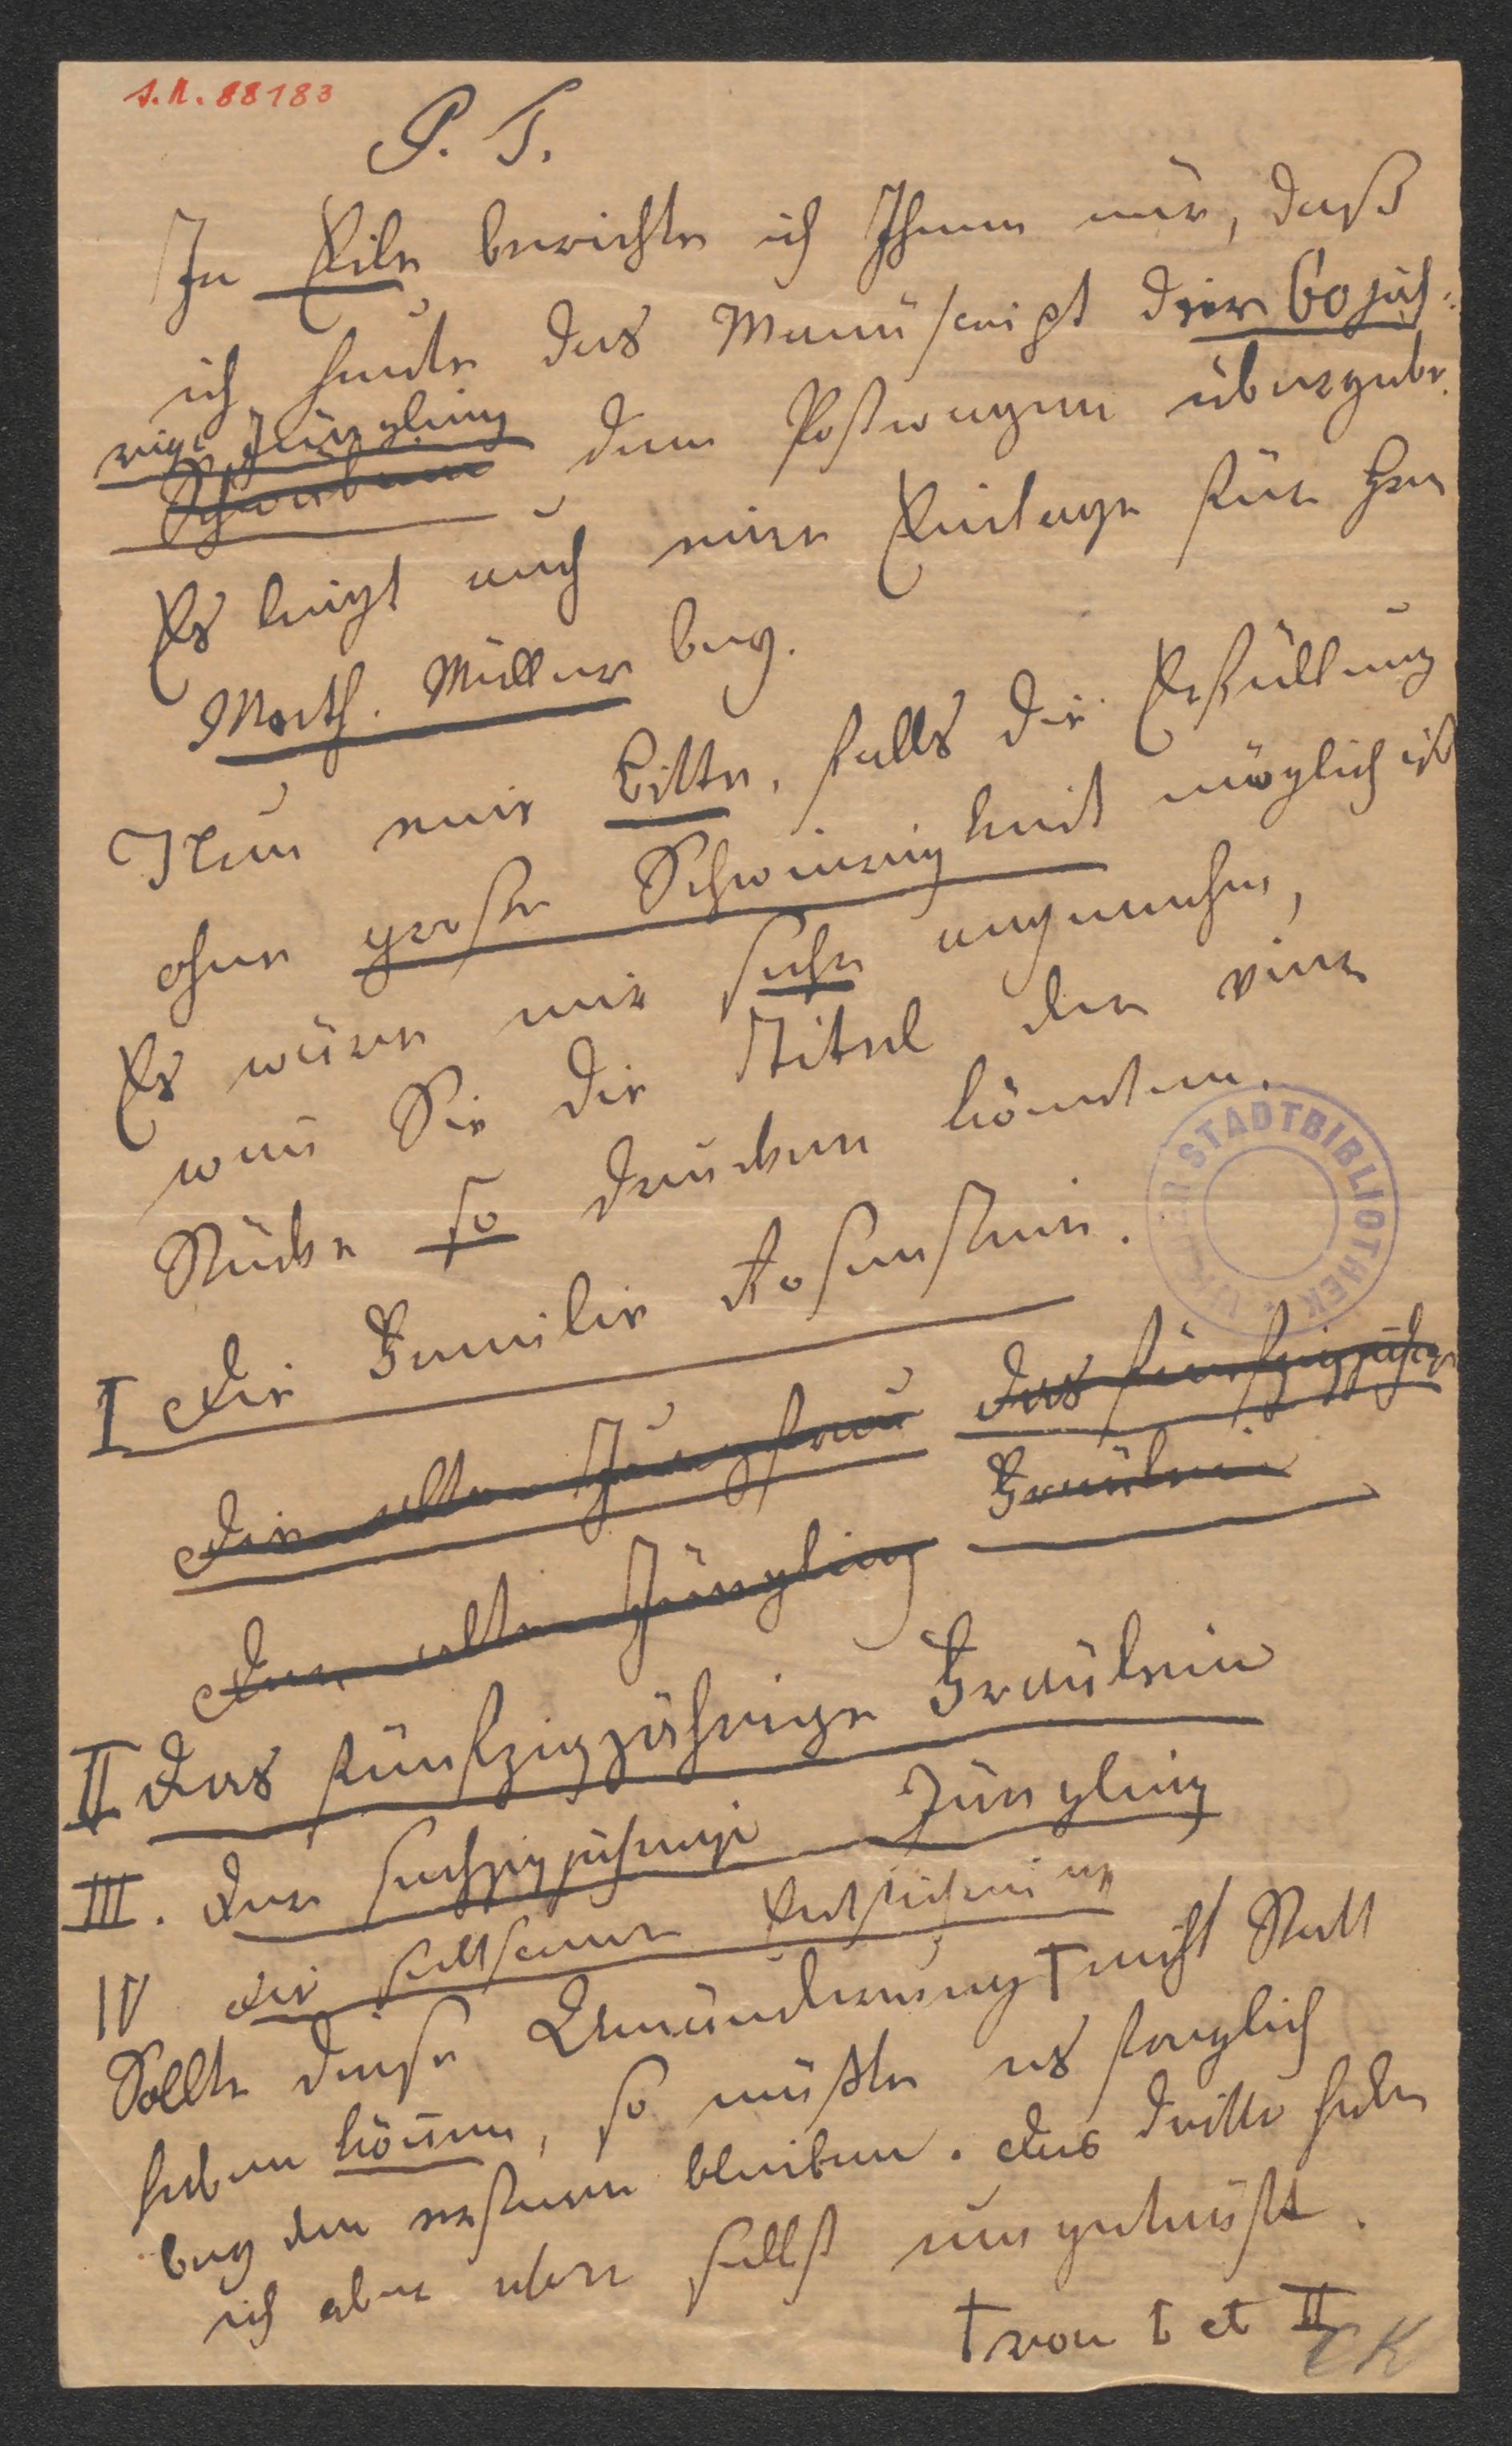 I.N. 88183
P. T.
In Eile berichte ich Ihnen nur, daß
ich heute das Manuscript der 60 jäh-
rige Jüngling
Schwaben dem Postwagen übergebe.
Es liegt auch eine Einlage für Hrn
Moth. Müller bey.
Nun eine Bitte, falls die Erfüllung
ohne große Schwierigkeit möglich ist
Es wäre mir sehr angenehm,
wenn Sie die Titel der vier
Stücke so drucken könnten.
STADTBIBLIOTHEK
I Die Familie Rosenstein.
Die alte Jungfrau Das fünfzigjährige
Fräulein
Der alte Jüngling
II Das fünfzigjährige Fräulein
III. Der sechzigjährige Jüngling
IV Die seltsame Entführung
Sollte diese Umänderung † nicht Statt
haben können, so müßte es freylich
bey den ersteren bleiben. Das dritte habe
ich aber selbst umgetauft.
† von I et II
CK